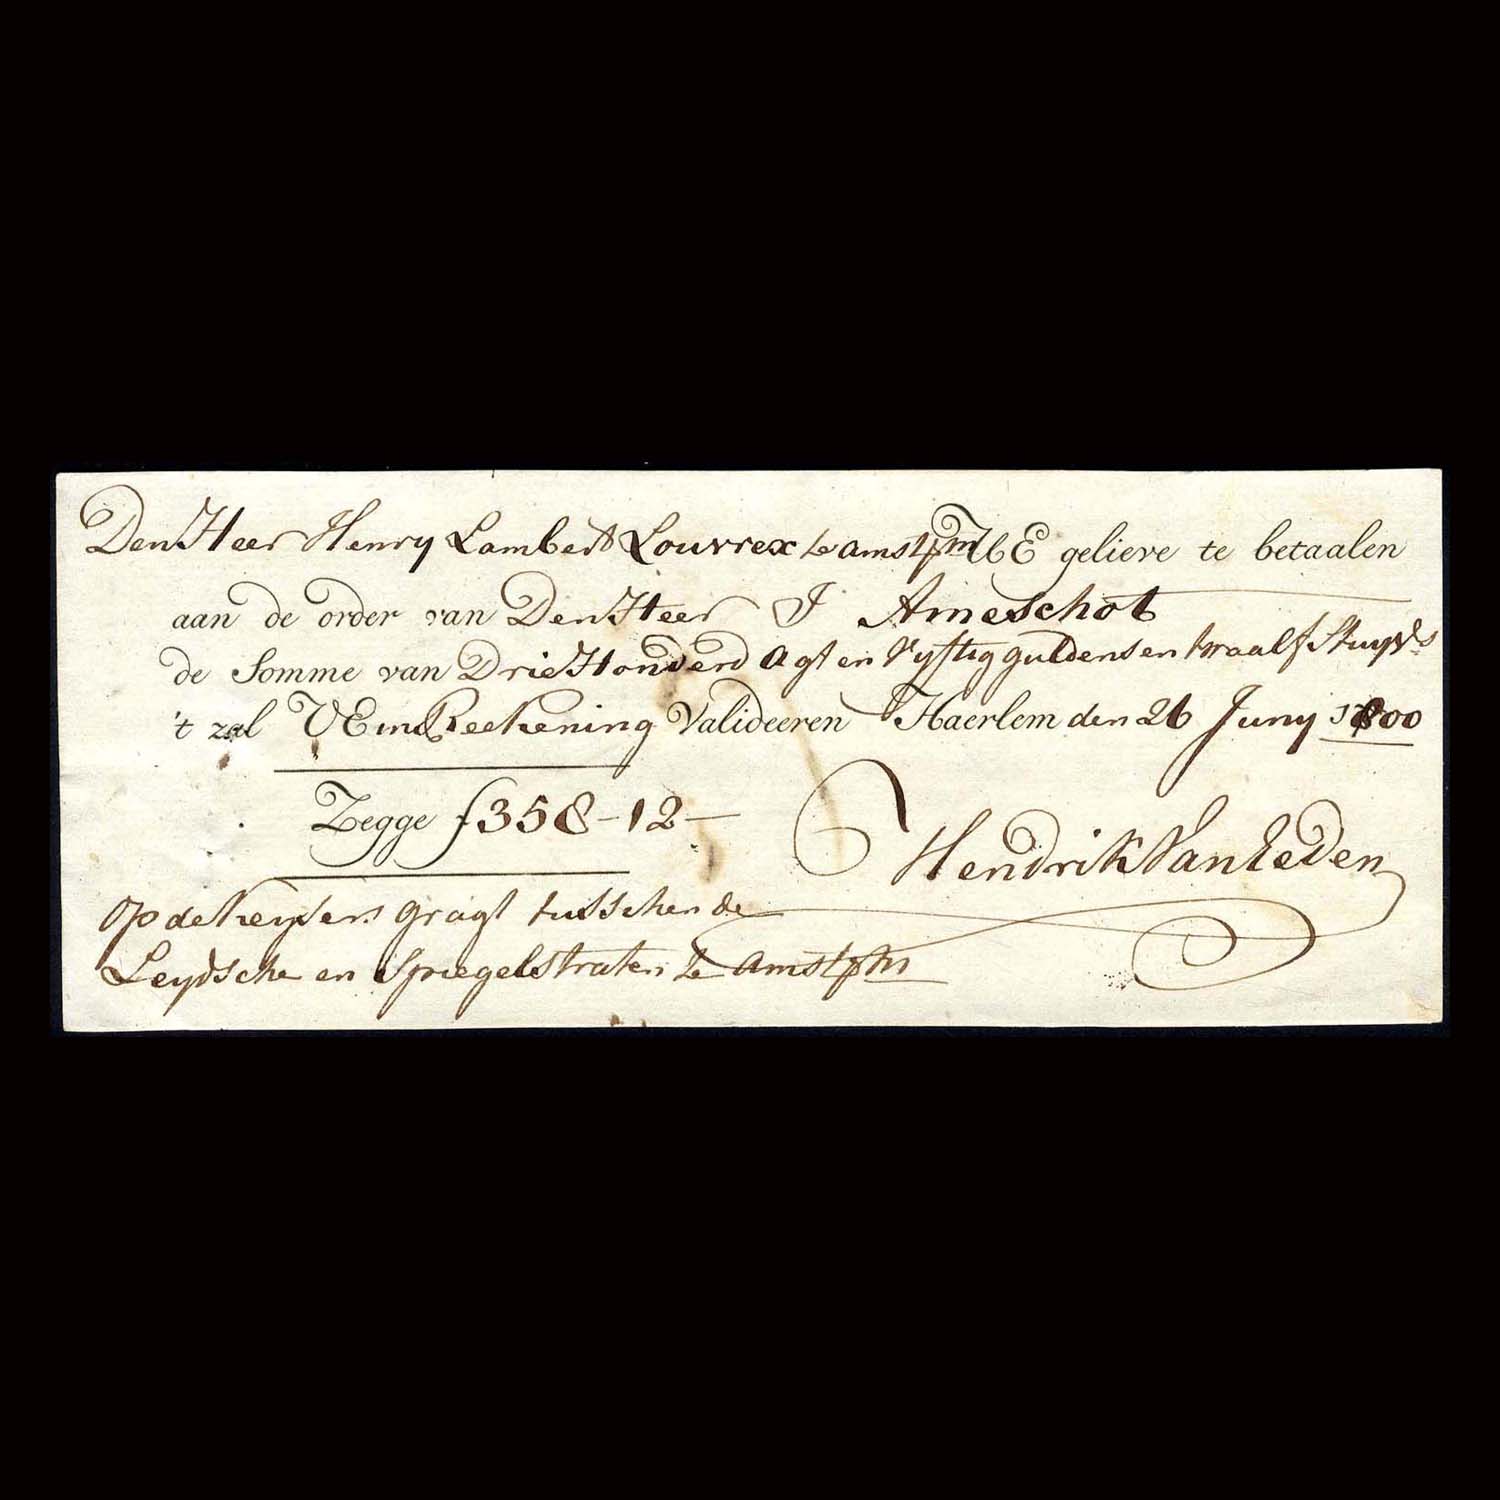 Den Heer Henry Lambert Louvrex te amstdm UE gelieve te betaalen
aan de order van Den Heer J Ameschot
de Somme van Drie Honderd Agt en Vyftig guldens en twaalf Stuyvs
't zal UE in Reekening Valideeren Haerlem den 26 Juny 1800
Zegge f 358-12-
Hendrik Van Eeden
op de Keysers gragt tusschen de
Leydsche en Spiegelstraten te amstdm